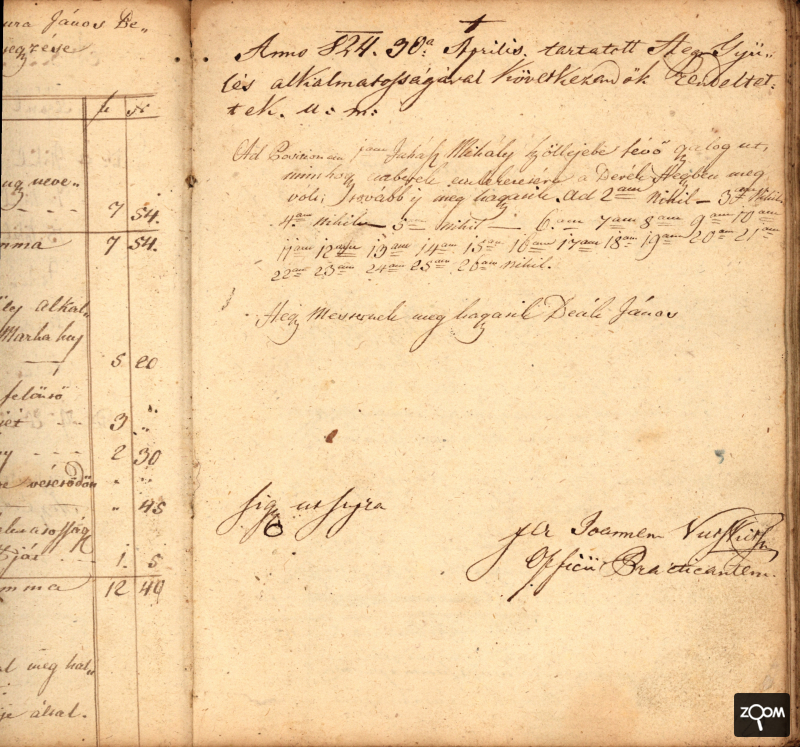 ura János Be„
egzése
f x
ug neve„
7 54.
mma 7 54.
alkal„
Marha huj
5 20
felső
3 „
2 30
„ „
„ 45
1. 5
mma 12 40
meg hal„
által.
Anno 824. 30a Aprilis. tartatott Hegy Gyü„
lés alkalmatosságával Következendők Rendeltet„
tek. u. m:
Ad Positionem 1am Juhász Mihály szőllejébe lévő gyalog ut,
minhogy emberek emlékezetére a Derék Hegyben meg
volt, továbbá is meg hagyasik. Ad 2am Nihil – 3am Nihil
4am nihil – 5am nihil – 6am 7am 8am 9am 10am
11am 12am 13am 14am 15am 16am 17am 18am 19am 20am 21am
22am 23am 24am 25am 26am nihil.
Hegy Mesternek meg hagyasik Deák János
Sig. ut supra
per Joannem
Officii Practicantem.
ZOOM